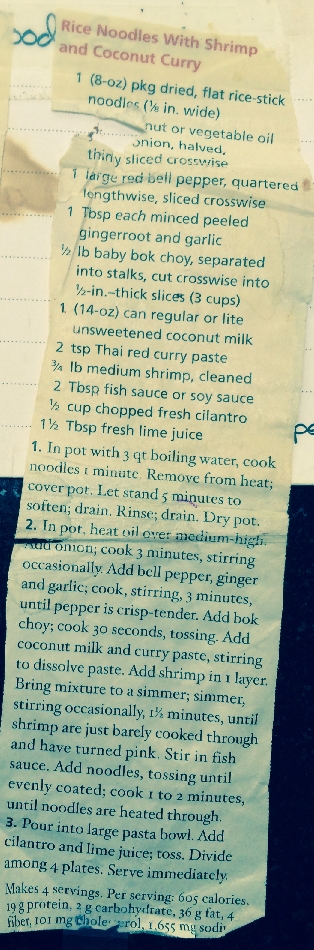 ood
Rice Noodles With Shrimp
and Coconut Curry
1 (8-oz) pkg dried, flat rice-stick
noodles (⅛ in. wide)
nut or vegetable oil
onion, halved,
thinly sliced crosswise
1 large red bell pepper, quartered
lengthwise, sliced crosswise
1 Tbsp each minced peeled
gingerroot and garlic
½ lb baby bok choy, separated
into stalks, cut crosswise into
½-in.–thick slices (3 cups)
1 (14-oz) can regular or lite
unsweetened coconut milk
2 tsp Thai red curry paste
¾ lb medium shrimp, cleaned
2 Tbsp fish sauce or soy sauce
½ cup chopped fresh cilantro
1½ Tbsp fresh lime juice
pe
1. In pot with 3 qt boiling water, cook
noodles 1 minute. Remove from heat;
cover pot. Let stand 5 minutes to
soften; drain. Rinse; drain. Dry pot.
2. In pot, heat oil over medium-high.
Add onion; cook 3 minutes, stirring
occasionally. Add bell pepper, ginger
and garlic; cook, stirring, 3 minutes,
until pepper is crisp-tender. Add bok
choy; cook 30 seconds, tossing. Add
coconut milk and curry paste, stirring
to dissolve paste. Add shrimp in 1 layer.
Bring mixture to a simmer; simmer,
stirring occasionally, 1½ minutes, until
shrimp are just barely cooked through
and have turned pink. Stir in fish
sauce. Add noodles, tossing until
evenly coated; cook 1 to 2 minutes,
until noodles are heated through.
3. Pour into large pasta bowl. Add
cilantro and lime juice; toss. Divide
among 4 plates. Serve immediately.
Makes 4 servings. Per serving: 605 calories,
19 g protein, 2 g carbohydrate, 36 g fat, 4
fiber, 101 mg chole erol, 1,655 mg sodi